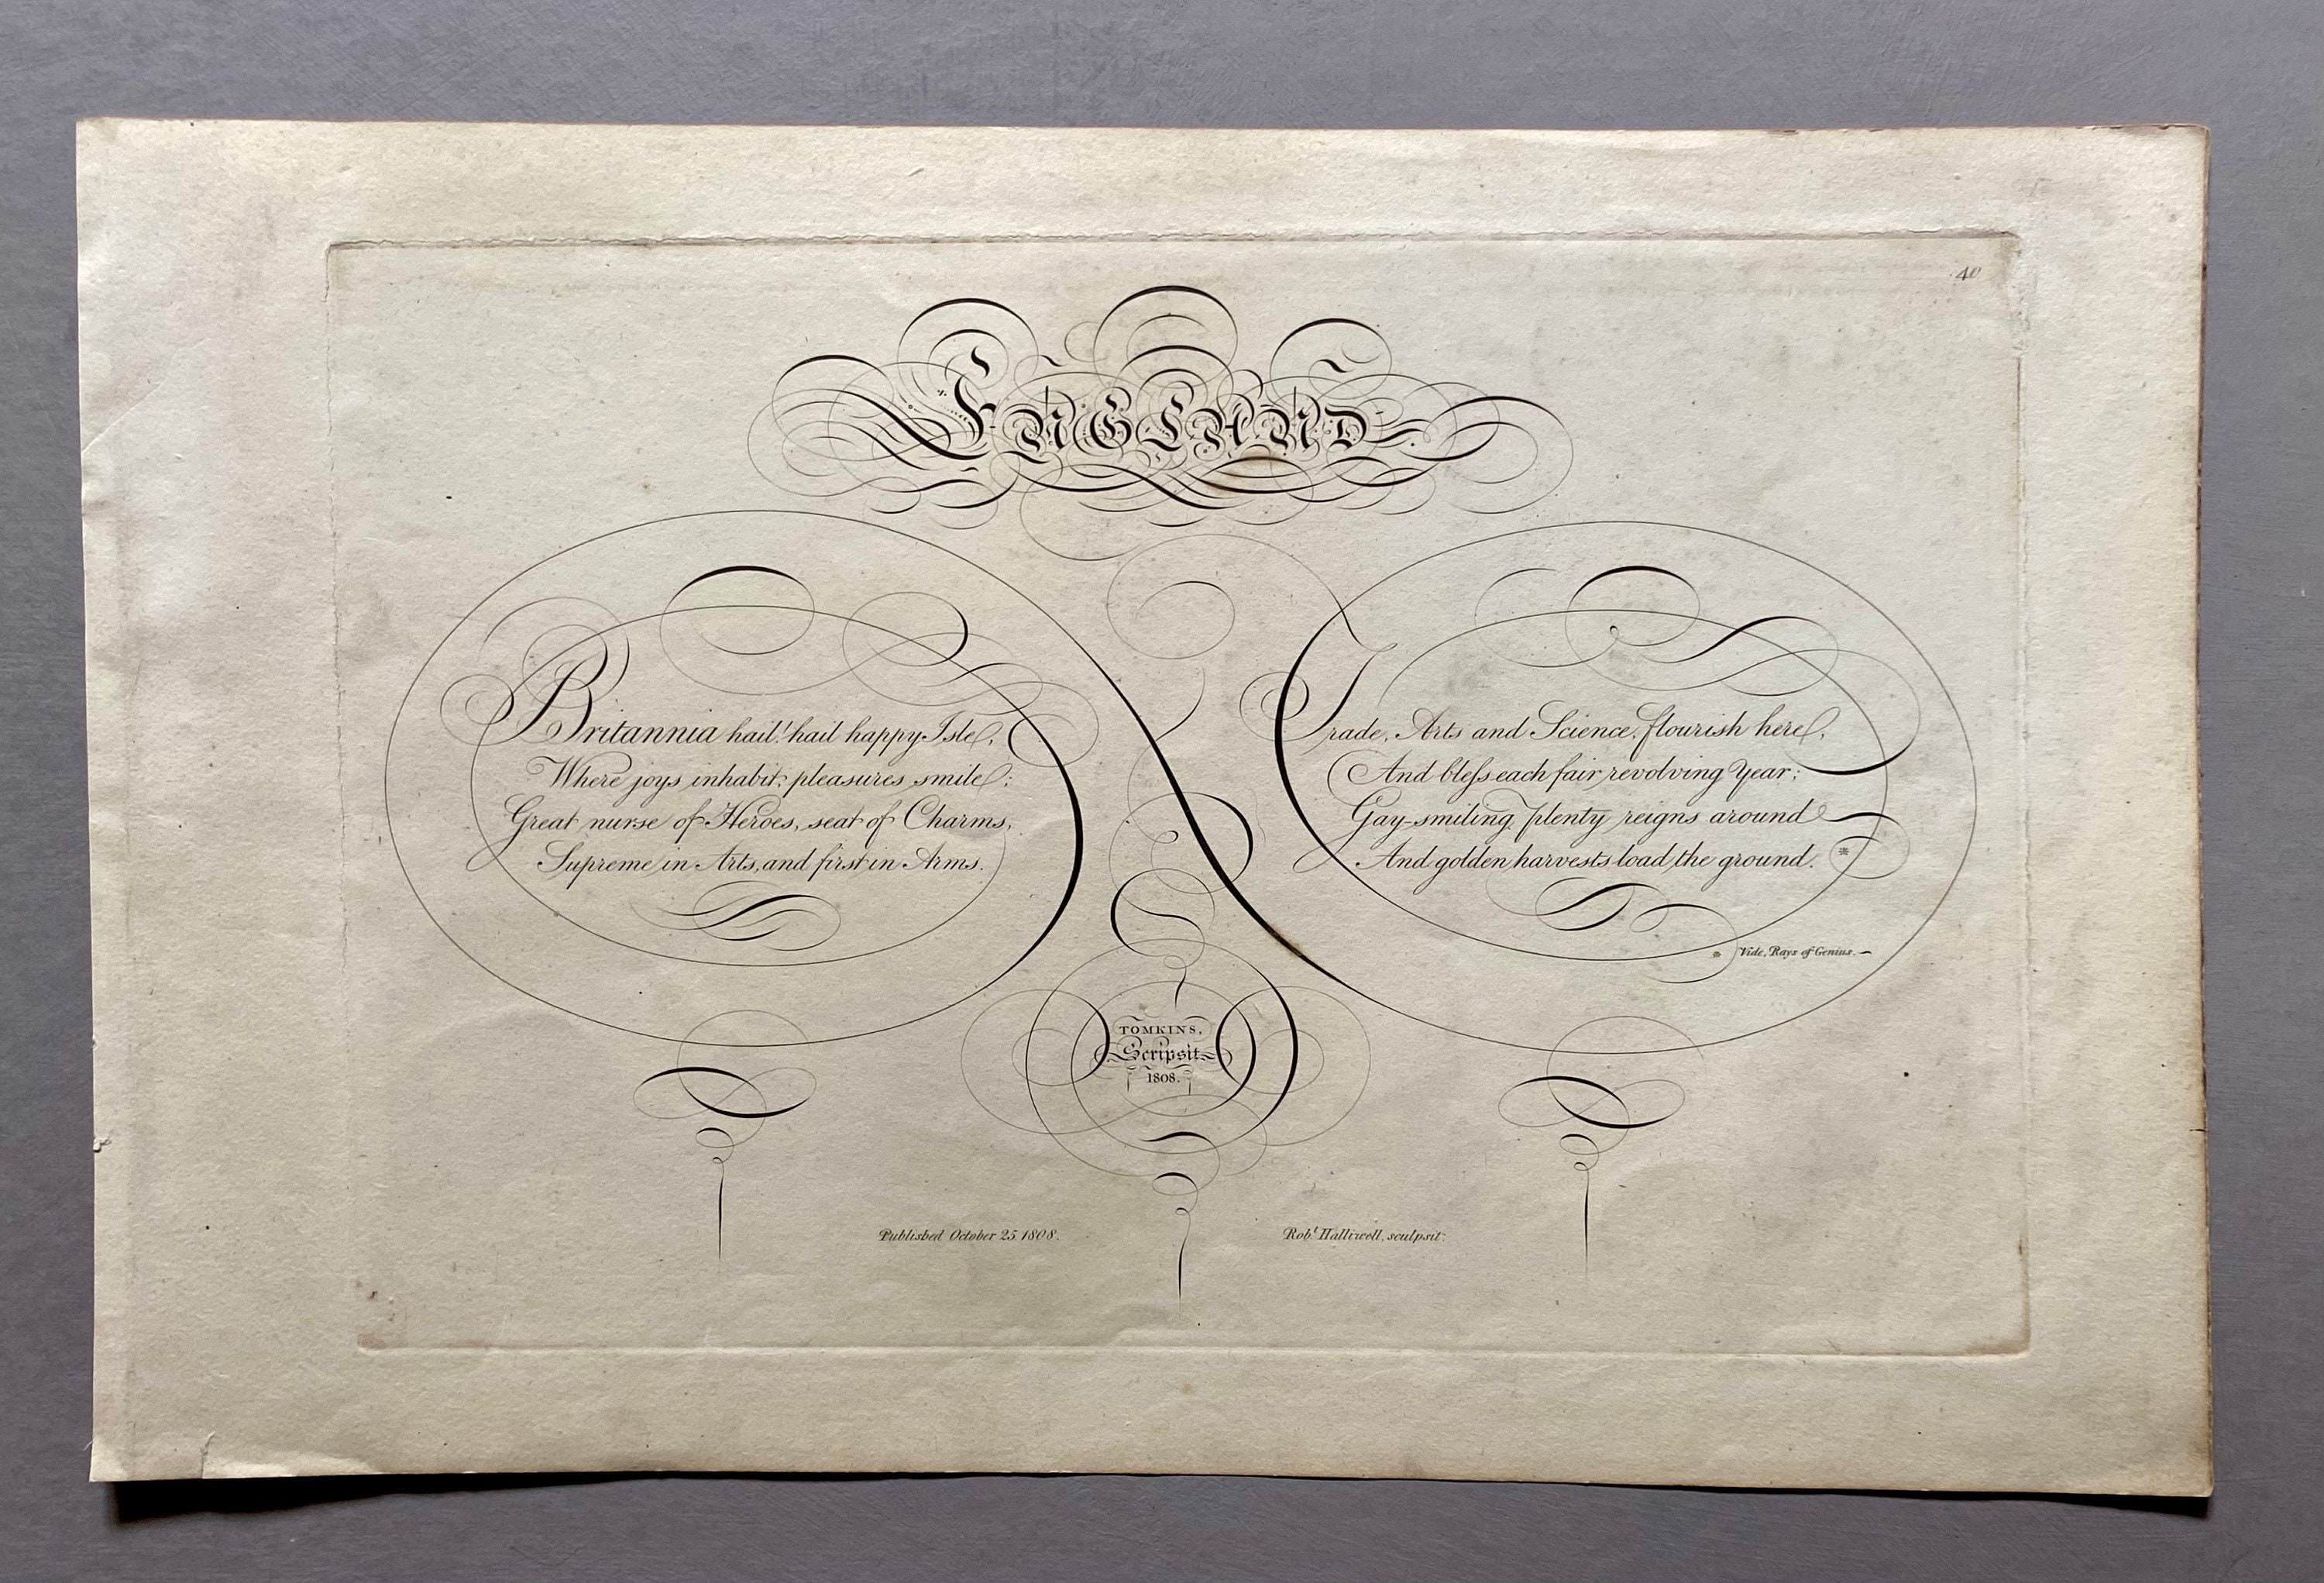 40
ENGLAND
Britannia hail! hail happy Isle,
Where joys inhabit; pleasures smile;
Great nurse of Heroes, seat of Charms,
Supreme in Arts, and first in Arms.
Trade, Arts and Science, flourish here,
And bleſs each fair revolving Year;
Gay-smiling plenty reigns around
And golden harvests load the ground. *
* Vide, Rays of Genius.
TOMKINS,
Scripsit
1808.
Published October 25 1808.
Robt Halliwell, sculpsit.